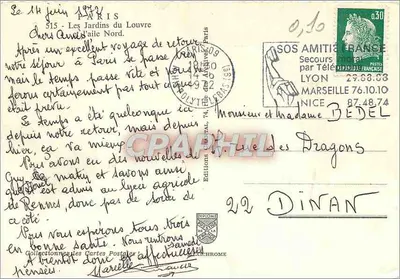 PARIS
515 - Les Jardins du Louvre
l'aile Nord.
Le 14 juin 1972
Chers Amis
Après un excellent voyage de retour
notre séjour à Paris se passe bien
mais le temps passe vite et nous
ferons certainement pas tout ce qui
était prévu.
Le temps a été quelconque ici
depuis notre retour, mais depuis
hier ça va mieux.
Nous avons eu des nouvelles de
Guy ce matin et savons ainsi
qu'il est admis au lycée agricole
de Rennes, donc pas de souci de
ce côté.
Nous vous espérons tous trois
en bonne santé. Nous rentrons samedi
A bientôt donc affectueuses
pensées
Marcelle
Collectionnez les Cartes Postales
0,10
SOS AMITIE FRANCE
Secours moral
par Téléphone
LYON 29.88.88
MARSEILLE 76.10.10
NICE 87.48.74
0,30
POSTES
PARIS 09
1972
Monsieur et madame BEDEL
Rue des Dragons
22 DINAN
CPArama.com